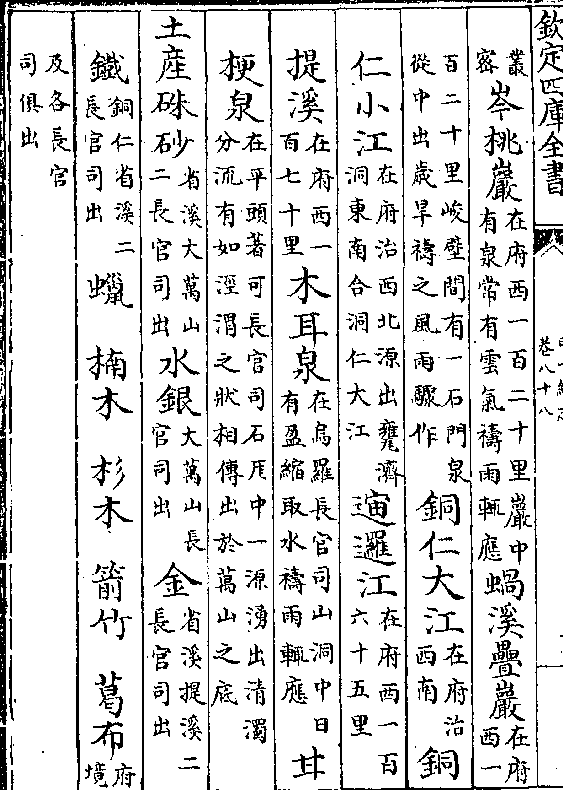 欽定四庫全書
卷八十八
叢密岑桃巖在府西一百二十里巖中有泉常有雲氣禱雨輒應蝸溪疊巖在府西一
百二十里峻壁間有一石門泉從中出歲旱禱之風雨驟作銅仁大江在府治西南銅
仁小江在府治西北源出甕濟洞東南合洞仁大江逥邏江在府西一百六十五里
提溪在府西一百七十里木耳泉在烏羅長官司山洞中日有盈縮取水禱雨輒應甘
梗泉在平頭著可長官司石厓中一源湧出清濁分流有如涇渭之狀相傳出於萬山之底
土産硃砂省溪大萬山二長官司出水銀大萬山長官司出金省溪提溪二長官司出
鐵銅仁省溪二長官司出蠟 楠木 杉木 箭竹 葛布府境
及各長官司俱出